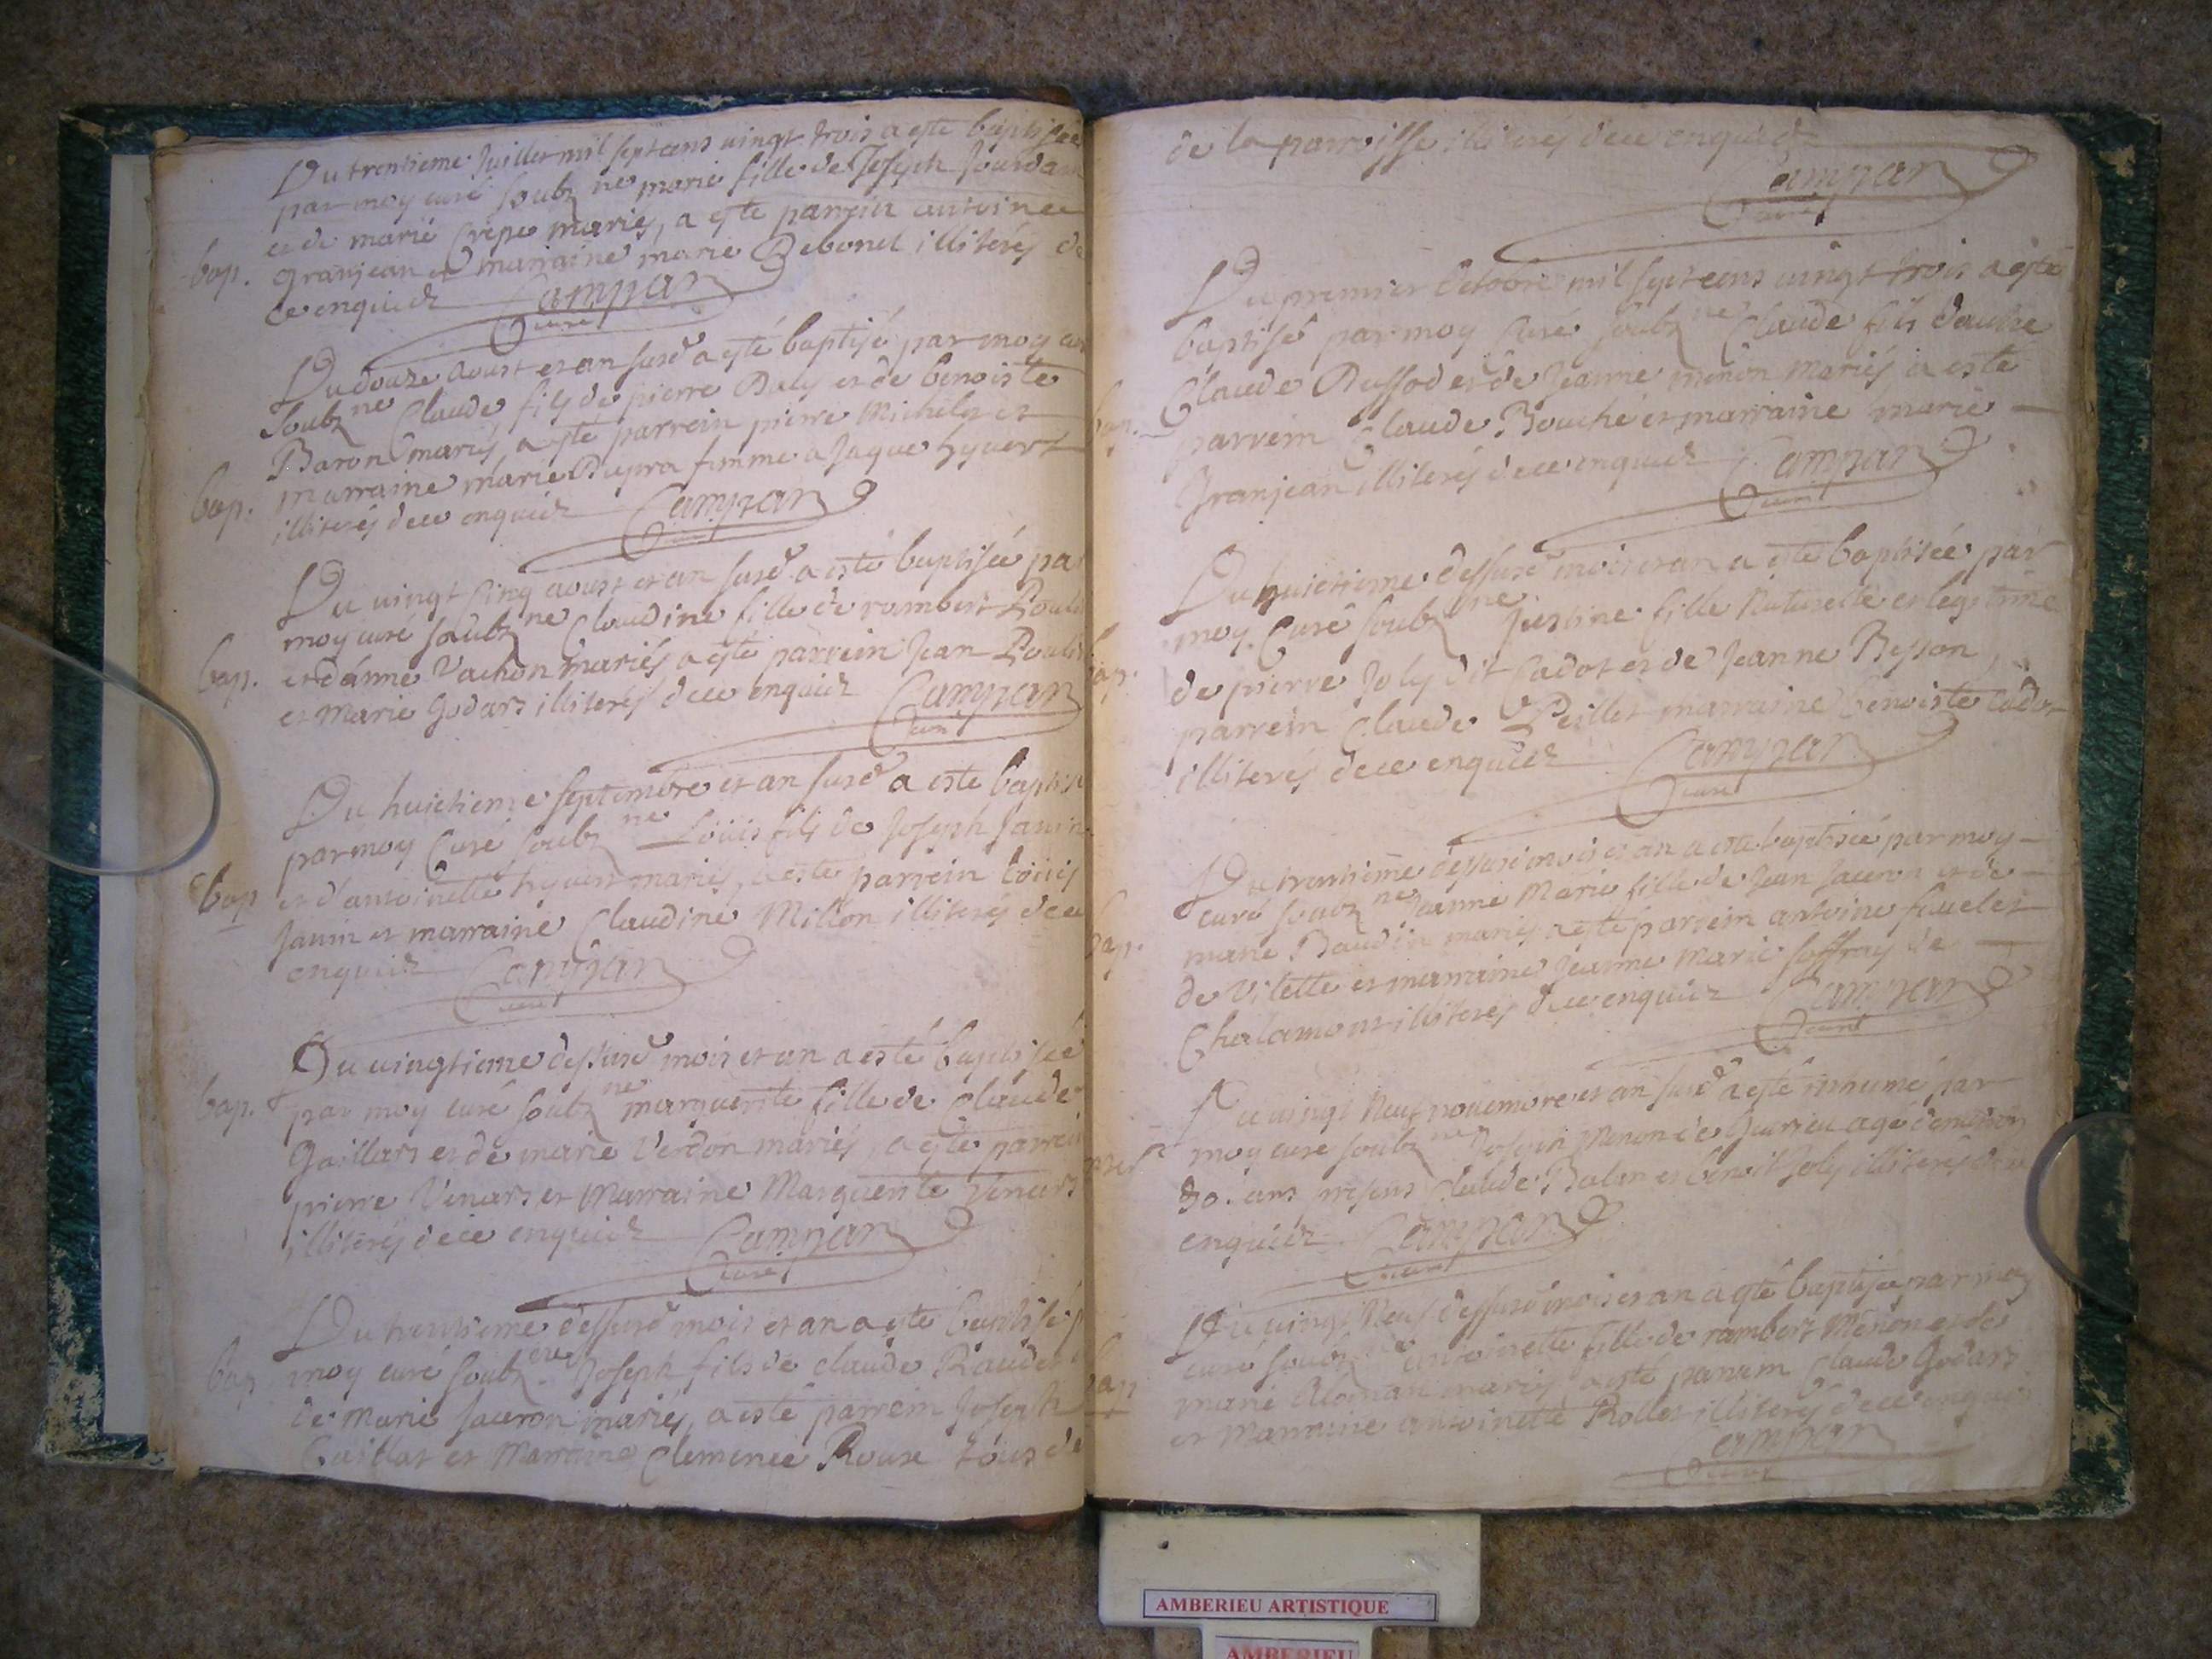 Du trentieme Juillet mil sept cens vingt trois a esté baptisée
par moy curé soubzne marie fille de Joseph Jourdan
et de marie Crépe mariés, a esté parrein antoine
bap.
granjean et marraine marie Debonet illiterés de
ce enquidz Campan
curé
Du douze aoust et an susd a esté baptisé par moy cu
soubzne Claude fils de pierre Buly et de benoiste
Baron mariés, a esté parrein pierre Michelet et
bap.
marraine marie Dupra femme a Jaque hyvert
illiterés de ce enquidz Campan
curé
Du vingt cinq aoust et an susd a esté baptisée pa
moy curé soubzne Claudine fille de rambert
bap.
et d'anne Vachon mariés a esté parrein Jean
et Marie Godarz illiterés de ce enquidz Campan
curé
Du huictieme septembre et an susd a esté baptisé
par moy Curé soubzne Loüis fils de Joseph Janin
bap
et d'antoinette hyvert mariés, a esté parrein loüis
Janin et marraine Claudine Millon illiterés de ce
enquidz Campan
curé
Du vingtieme dessusd mois et an a esté baptisée
bap.
par moy curé soubzne marguerite fille de Claude
Gaillarz et de marie Verdon mariés, a esté parrein
pierre Venarz et Marraine Marguerite Venarz
illiterés de ce enquidz Campan
curé
Du trentieme dessusd mois et an a esté baptisé p
bap
moy curé soubzne Joseph fils de claude Raudet
de Marie Jaceron mariés, a esté parrein Joseph
et Marraine Clemence Rouse tous de
de la parroisse illiterés de ce enquidz
Campan
curé
Du premier Octobre mil sept cens vingt trois a esté
baptisé par moy Curé soubzne Claude fils d'autre
Claude Buffod et de Jeanne menon mariés a esté
bap.
parrein Claude Bouché et marraine marie
Granjean illiterés de ce enquidz Campan
curé
Du huictieme dessusd mois et an a esté baptisée par
moy Curé soubzne Justine fille Naturelle et legitime
bap.
de pierre Joly dit Cadot et de Jeanne Besson,
parrein Claude Peillet marraine benoiste cadot
illiterés de ce enquidz Campan
curé
Du trentieme dessusd mois et an a esté baptisée par moy
curé soubzne Jeanne Marie fille de Jean Jaceron et de
bap.
marie Baudin mariés a esté parrein antoine
de Vilette et marraine Jeanne Marie Joffray de
Chalamont illiterés de ce enquidz Campan
curé
Du vingt Neuf novembre et an susd a esté inhumé par
moy curé soubzne Joseph Menon de agé d'environ
ans presens Claude Balan et benoit Joly illiterés de ce
enquidz Campan
curé
Du vingt Neuf dessusd mois et an a esté baptisée par moy
curé soubzne antoinette fille de rambert Menon et de
bap
marie mariés a esté parrein Claude Godarz
et Marraine antoinette Rollet illiterés de ce enquidz
Campan
curé
AMBERIEU ARTISTIQUE
AMBERIEU